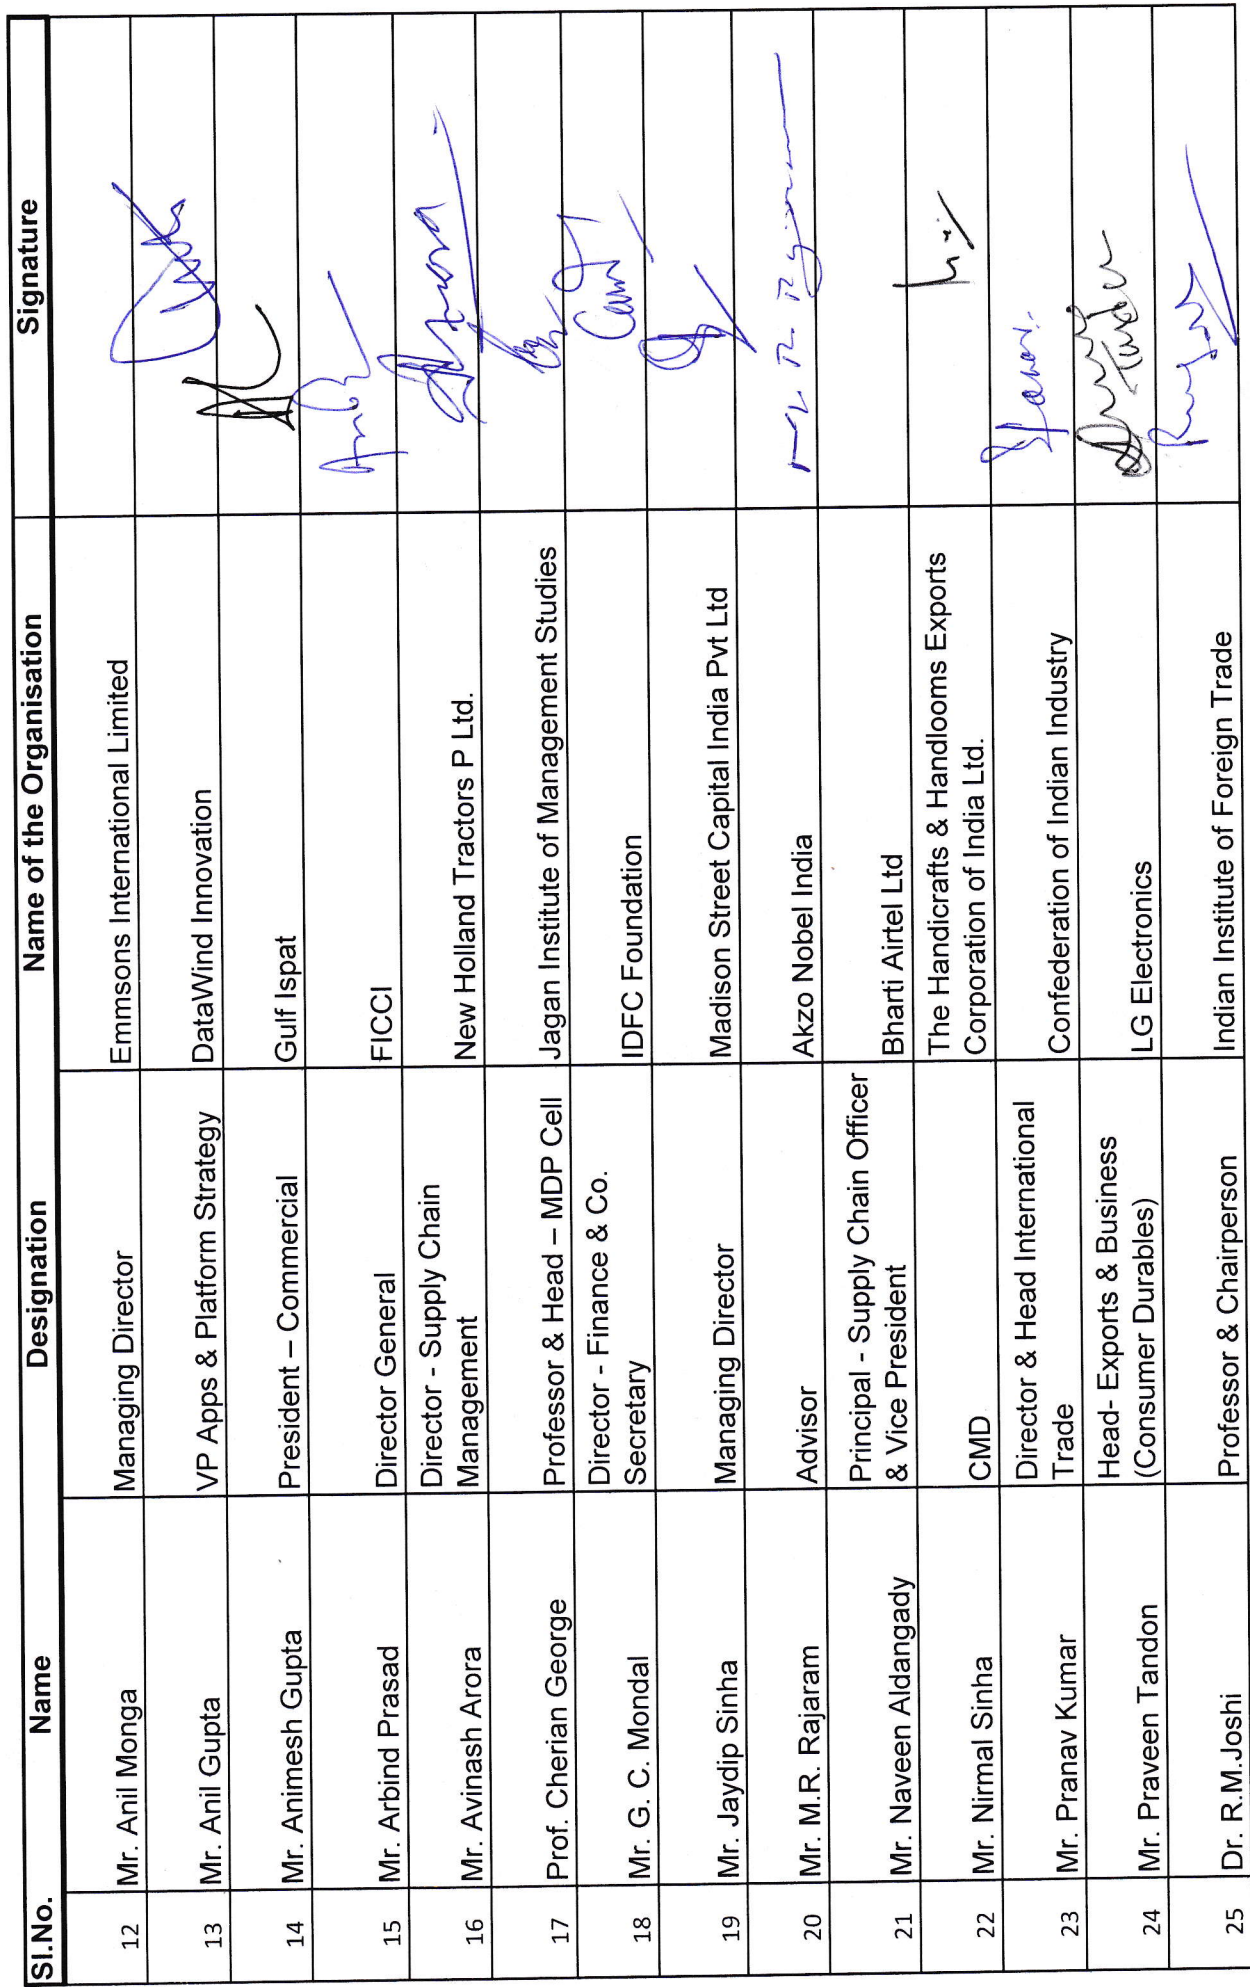 Sl.No. Name Designation Name of the Organisation Signature
12 Mr. Anil Monga Managing Director Emmsons International Limited
13 Mr. Anil Gupta VP Apps & Platform Strategy DataWind Innovation
14 Mr. Animesh Gupta President – Commercial Gulf Ispat
15 Mr. Arbind Prasad Director General FICCI
16 Mr. Avinash Arora Director - Supply Chain
Management New Holland Tractors P Ltd.
17 Prof. Cherian George Professor & Head – MDP Cell Jagan Institute of Management Studies
18 Mr. G. C. Mondal Director - Finance & Co.
Secretary IDFC Foundation
19 Mr. Jaydip Sinha Managing Director Madison Street Capital India Pvt Ltd
20 Mr. M.R. Rajaram Advisor Akzo Nobel India
21 Mr. Naveen Aldangady Principal - Supply Chain Officer
& Vice President Bharti Airtel Ltd
22 Mr. Nirmal Sinha CMD The Handicrafts & Handlooms Exports
Corporation of India Ltd.
23 Mr. Pranav Kumar Director & Head International
Trade Confederation of Indian Industry
24 Mr. Praveen Tandon Head- Exports & Business
(Consumer Durables) LG Electronics
25 Dr. R.M.Joshi Professor & Chairperson Indian Institute of Foreign Trade